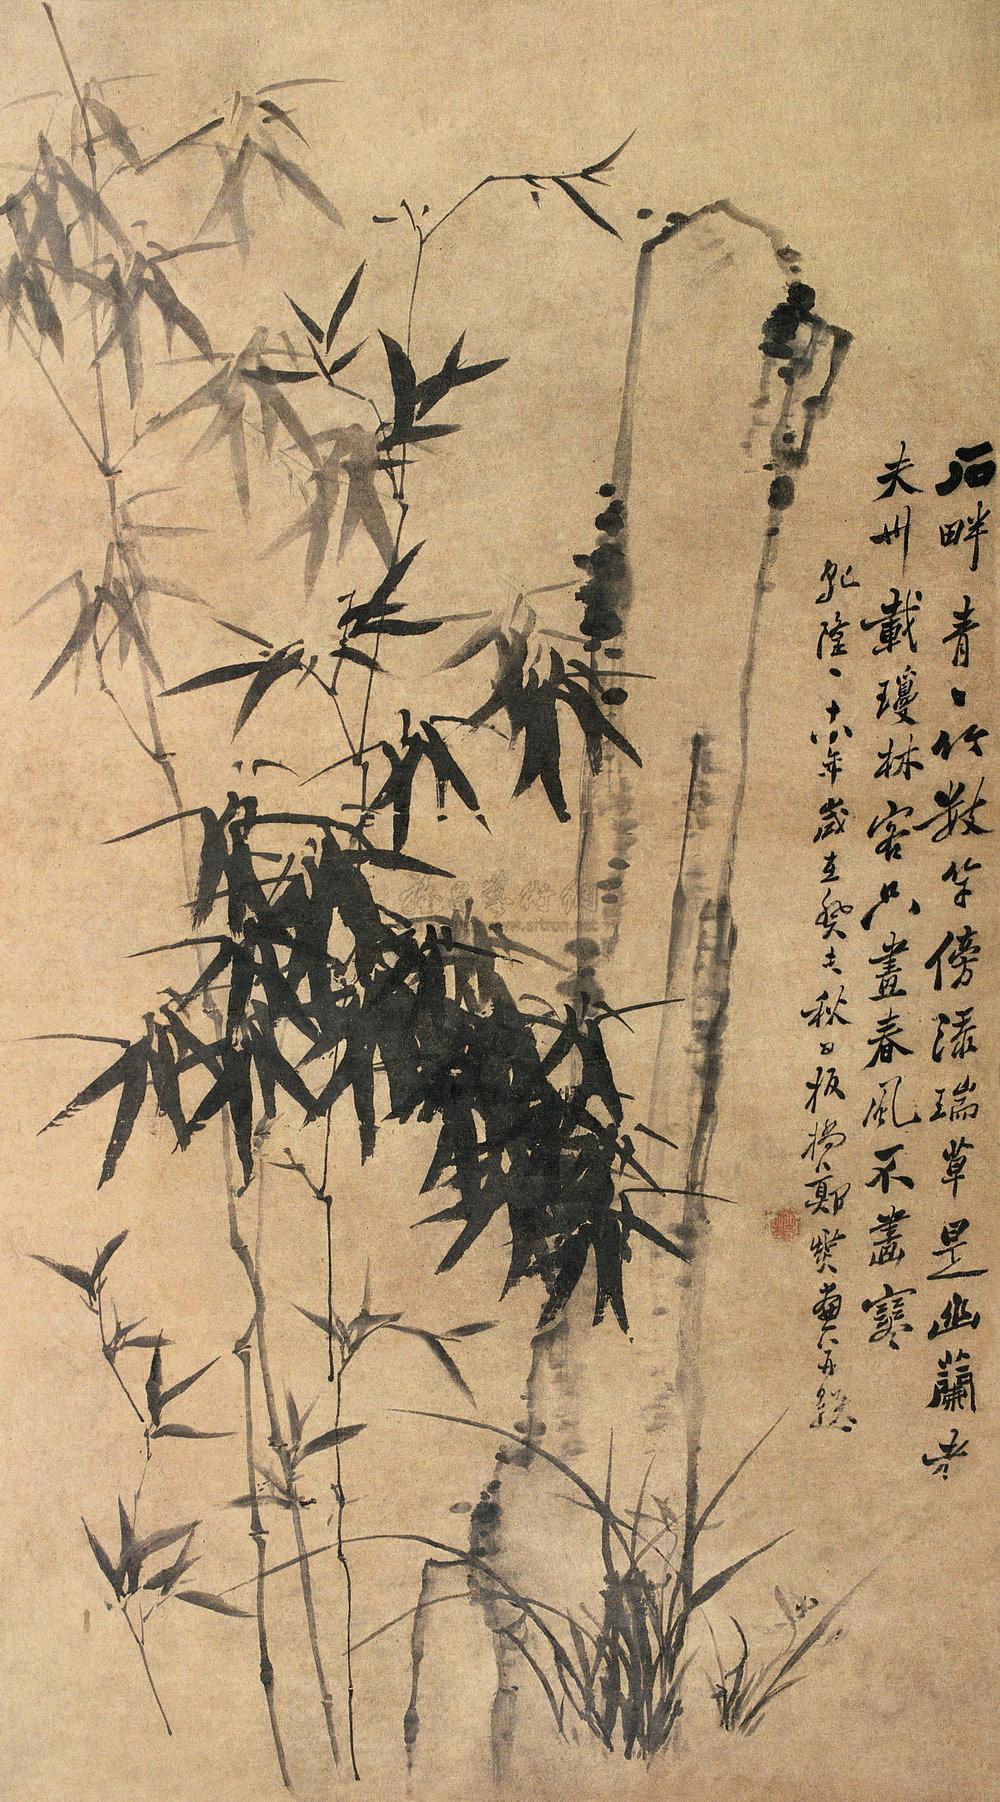 石畔青〻竹数竿傍添瑞草是幽蘭老
夫卅載瓊林客只畫春風不畫寒
乾隆二十八年歲在癸未秋日板橋鄭燮畫并題